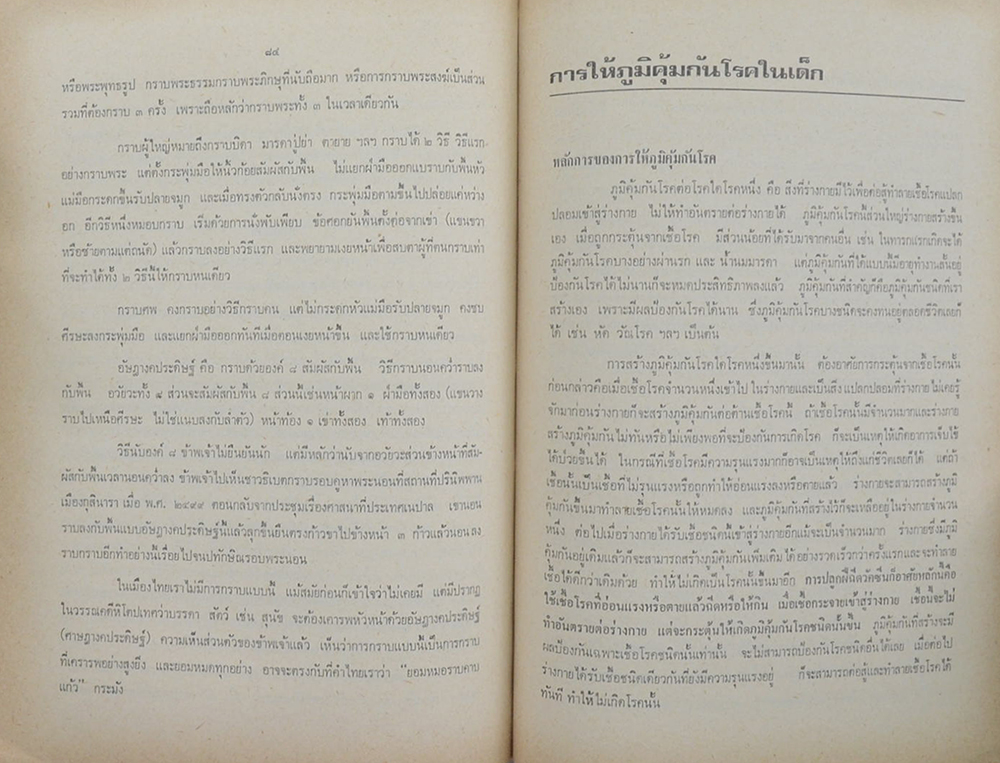 ๘๔
หรือพระพุทธรูป กราบพระธรรมกราบพระภิกษุที่นับถือมาก หรือการกราบพระสงฆ์เป็นส่วน
รวมที่ต้องกราบ ๓ ครั้ง เพราะถือหลักว่ากราบพระทั้ง ๓ ในเวลาเดียวกัน
กราบผู้ใหญ่หมายถึงกราบบิดา มารดาปู่ย่า ตายาย ฯลฯ กราบได้ ๒ วิธี วิธีแรก
อย่างกราบพระ แต่ตั้งกระพุ่มมือให้นิ้วก้อยสัมผัสกับพื้น ไม่แยกฝ่ามือออกแบราบกับพื้นหัว
แม่มือกระดกขึ้นรับปลายจมูก และเมื่อทรงตัวกลับนั่งตรง กระพุ่มมือตามขึ้นไปปล่อยแค่หว่าง
อก อีกวิธีหนึ่งหมอบกราบ เริ่มด้วยการนั่งพับเพียบ ข้อศอกยันพื้นตั้งคู่จากเข่า (แขนขวา
หรือซ้ายตามแต่ถนัด) แล้วกราบลงอย่างวิธีแรก และพยายามเงยหน้าเพื่อสบตาผู้ที่ตนกราบเท่า
ที่จะทำได้ทั้ง ๒ วิธีนี้ให้กราบหนเดียว
กราบศพ คงกราบอย่างวิธีกราบคน แต่ไม่กระดกหัวแม่มือรับปลายจมูก คงซบ
ศีรษะลงกระพุ่มมือ และแยกฝ่ามือออกทันทีเมื่อตอนเงยหน้าขึ้น และใช้กราบหนเดียว
อัษฎางคประดิษฐ์ คือ กราบด้วยองค์ ๘ สัมผัสกับพื้น วิธีกราบนอนคว่ำราบลง
กับพื้น อวัยวะทั้ง ๘ ส่วนจะสัมผัสกับพื้น ๘ ส่วนนี้เช่นหน้าผาก ๑ ฝ่ามือทั้งสอง (แขนวาง
ราบไปเหนือศีรษะ ไม่ใช่แนบลงกับลำตัว) หน้าท้อง ๑ เข่าทั้งสอง เท้าทั้งสอง
วิธีนับองค์ ๘ ข้าพเจ้าไม่ยืนยันนัก แต่มีหลักว่านับจากอวัยวะส่วนข้างหน้าที่สัม-
ผัสกับพื้นเวลานอนคว่ำลง ข้าพเจ้าไปเห็นชาวธิเบตกราบรอบคูหาพระนอนที่สถานที่ปรินิพพาน
เมืองกุสินารา เมื่อ พ.ศ. ๒๔๙๙ ตอนกลับจากประชุมเรื่องศาสนาที่ประเทศเนปาล เขานอน
ราบลงกับพื้นแบบอัษฎางคประดิษฐ์นี้แล้วลุกขึ้นยืนตรงก้าวขาไปข้างหน้า ๓ ก้าวแล้วนอนลง
ราบกราบอีกทำอย่างนี้เรื่อยไปจนปทักษิณรอบพระนอน
ในเมืองไทยเราไม่มีการกราบแบบนี้ แม้สมัยก่อนก็เข้าใจว่าไม่เคยมี แต่มีปรากฏ
ในวรรณคดีหิโตปเทศว่าบรรดา สัตว์ เช่น สุนัข จะต้องเคารพหัวหน้าด้วยอัษฎางคประดิษฐ์
(ศาษฎางคประดิษฐ์) ความเห็นส่วนตัวของข้าพเจ้าแล้ว เห็นว่าการกราบแบบนี้เป็นการกราบ
ที่เคารพอย่างสูงยิ่ง และยอมหมดทุกอย่าง อาจจะตรงกับที่คำไทยเราว่า “ยอมหมอราบคาบ
แก้ว” กระมัง
การให้ภูมิคุ้มกันโรคในเด็ก
หลักการของการให้ภูมิคุ้มกันโรค
ภูมิคุ้มกันโรคต่อโรคใดโรคหนึ่ง คือ สิ่งที่ร่างกายมีไว้เพื่อต่อสู้ทำลายเชื้อโรคแปลก
ปลอมเข้าสู่ร่างกาย ไม่ให้ทำอันตรายต่อร่างกายได้ ภูมิคุ้มกันโรคนี้ส่วนใหญ่ร่างกายสร้างขึ้น
เอง เมื่อถูกกระตุ้นจากเชื้อโรค มีส่วนน้อยที่ได้รับมาจากคนอื่น เช่น ในทารกแรกเกิดจะได้
ภูมิคุ้มกันโรคบางอย่างผ่านรก และ น้ำนมมารดา แต่ภูมิคุ้มกันที่ได้แบบนี้มีอายุทำงานสั้นอยู่
ป้องกันโรคได้ไม่นานก็จะหมดประสิทธิภาพลงแล้ว ภูมิคุ้มกันที่สำคัญก็คือภูมิคุ้มกันชนิดที่เรา
สร้างเอง เพราะมีผลป้องกันโรคได้นาน ซึ่งภูมิคุ้มกันโรคบางชนิดจะคงทนอยู่ตลอดชีวิตเลยก็
ได้ เช่น หัด วัณโรค ฯลฯ เป็นต้น
การสร้างภูมิคุ้มกันโรคใดโรคหนึ่งขึ้นมานั้น ต้องอาศัยการกระตุ้นจากเชื้อโรคนั้น
ก่อนกล่าวคือเมื่อเชื้อโรคจำนวนหนึ่งเข้าไป ในร่างกายและเป็นสิ่งแปลกปลอมที่ร่างกายไม่เคยรู้
จักมาก่อนร่างกายก็จะสร้างภูมิคุ้มกันต่อต้านเชื้อโรคนี้ ถ้าเชื้อโรคนั้นมีจำนวนมากและร่างกาย
สร้างภูมิคุ้มกันไม่ทันหรือไม่เพียงพอที่จะป้องกันการเกิดโรค ก็จะเป็นเหตุให้เกิดอาการเจ็บไข้
ได้ป่วยขึ้นได้ ในกรณีที่เชื้อโรคมีความรุนแรงมากก็อาจเป็นเหตุให้ถึงแก่ชีวิตเลยก็ได้ แต่ถ้า
เชื้อนั้นเป็นเชื้อที่ไม่รุนแรงหรือถูกทำให้อ่อนแรงลงหรือตายแล้ว ร่างกายจะสามารถสร้างภูมิ
คุ้มกันขึ้นมาทำลายเชื้อโรคนั้นให้หมดลง และภูมิคุ้มกันที่สร้างไว้ก็จะเหลืออยู่ในร่างกายจำนวน
หนึ่ง ต่อไปเมื่อร่างกายได้รับเชื้อชนิดนี้เข้าสู่ร่างกายอีกแม้จะเป็นจำนวนมาก ร่างกายซึ่งมีภูมิ
คุ้มกันอยู่เดิมแล้วก็จะสามารถสร้างภูมิคุ้มกันเพิ่มเติมได้อย่างรวดเร็วกว่าครั้งแรกและจะทำลาย
เชื้อได้ดีกว่าเดิมด้วย ทำให้ไม่เกิดเป็นโรคนั้นขึ้นมาอีก การปลูกฝีฉีดวัคซีนก็อาศัยหลักนี้คือ
ใช้เชื้อโรคที่อ่อนแรงหรือตายแล้วฉีดหรือให้กิน เมื่อเชื้อกระจายเข้าสู่ร่างกาย เชื้อนี้จะไม่
ทำอันตรายต่อร่างกาย แต่จะกระตุ้นให้เกิดภูมิคุ้มกันโรคชนิดนั้นขึ้น ภูมิคุ้มกันที่สร้างจะมี
ผลป้องกันเฉพาะเชื้อโรคชนิดนั้นเท่านั้น จะไม่สามารถป้องกันโรคชนิดอื่นได้เลย เมื่อต่อไป
ร่างกายได้รับเชื้อชนิดเดียวกันที่ยังมีความรุนแรงอยู่ ก็จะสามารถต่อสู้และทำลายเชื้อโรคได้
ทันที ทำให้ไม่เกิดโรคนั้น